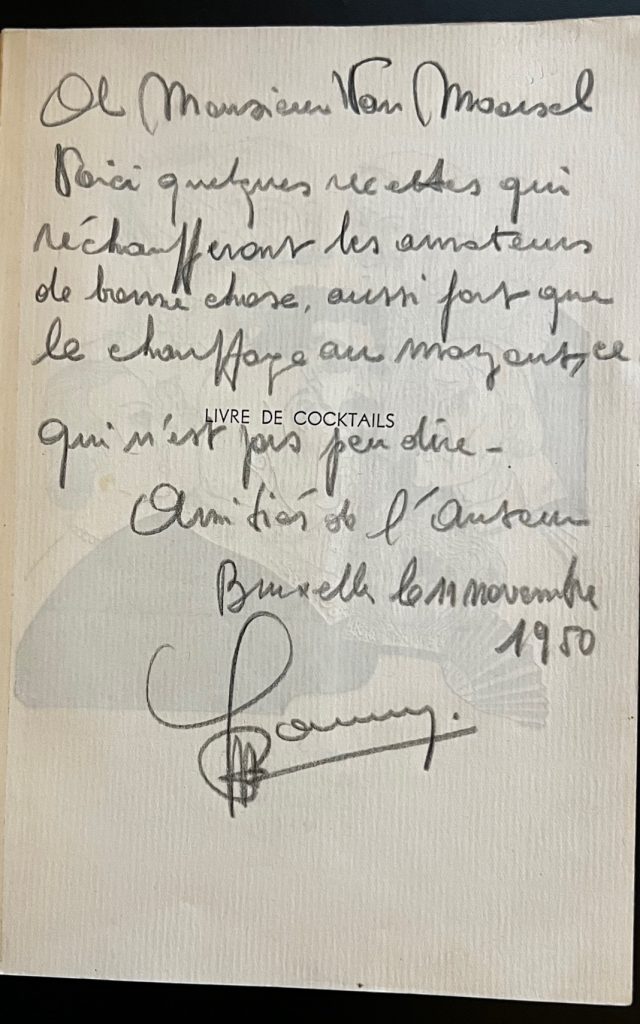 A Monsieur Van Moorsel
Voici quelques recettes qui
réchaufferont les amateurs
de bonne chose, aussi fort que
le chauffage au mazout, ce
LIVRE DE COCKTAILS
qui n'est pas peu dire -
Amitiés de l'auteur
Bruxelles le 11 novembre
1950